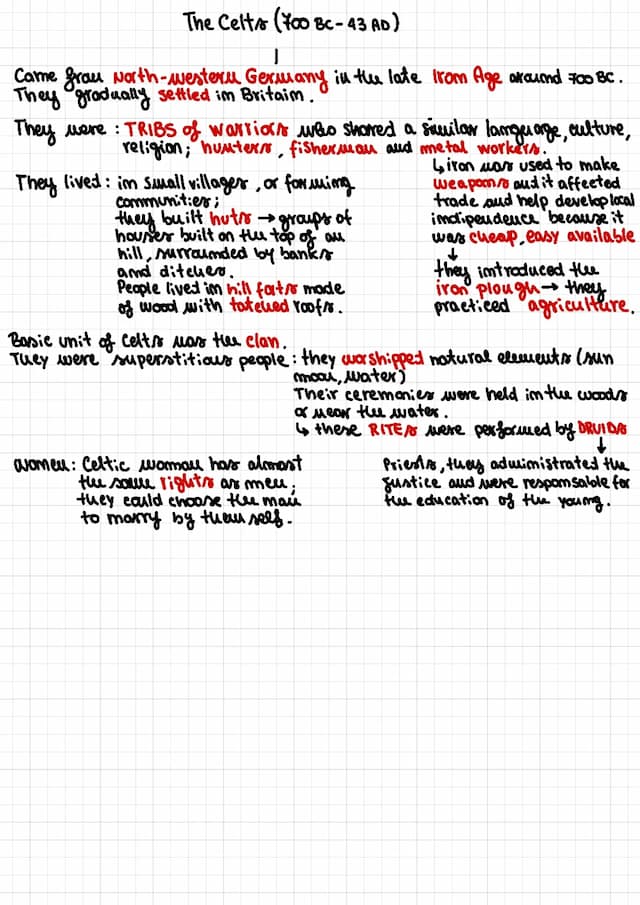 The Celts (700 BC - 43 AD)
Came from North-western Germany in the late Iron Age around 700 BC.
They gradually settled in Britain.
They were : TRIBS of warriors who shared a similar language, culture,
religion; hunters, fisherman and metal workers.
↳ iron was used to make
weapons and it affected
trade and help develop local
indipendence because it
was cheap, easy available
↓
they introduced the
iron plough → they
practiced agriculture.
They lived : in small villages, or forming
communities;
they built huts → groups of
houses built on the top of an
hill, surrounded by banks
and ditches.
People lived in hill forts made
of wood with tatched roofs.
Basic unit of Celts was the clan.
They were superstitious people : they worshipped natural elements (sun
moon, water)
Their ceremonies were held in the woods
or near the water.
↳ these RITES were performed by DRUIDS
↓
Priests, they administrated the
justice and were responsable for
the education of the young.
women : Celtic woman has almost
the same rights as men;
they could choose the man
to marry by themself.